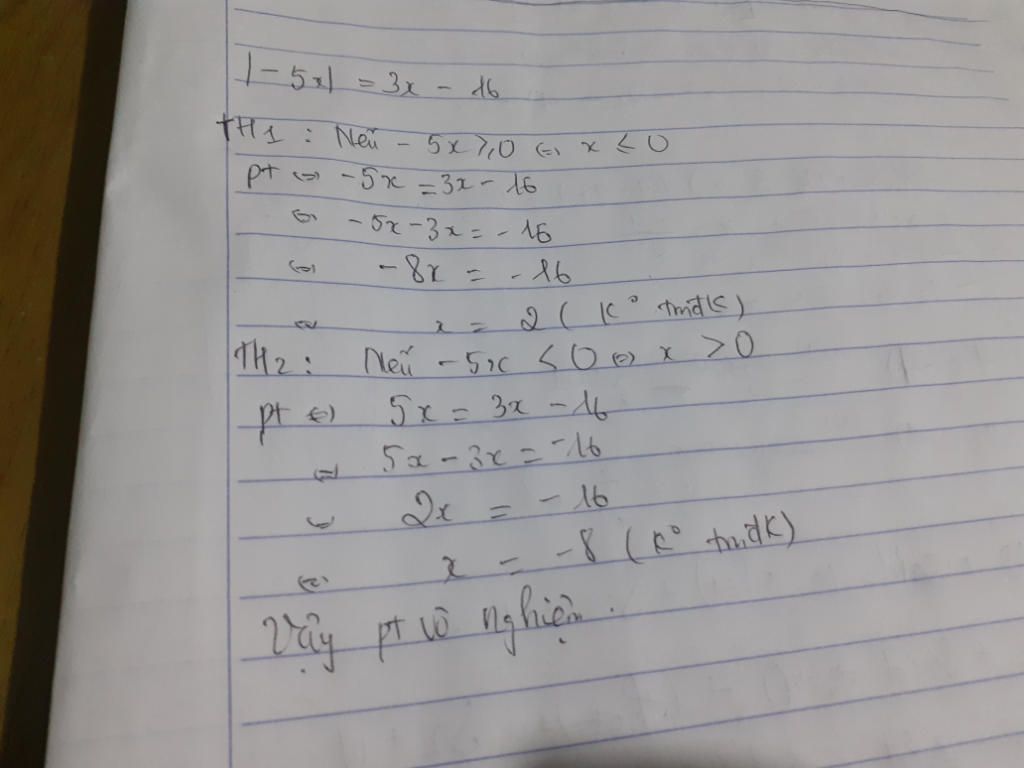 |-5x| = 3x - 16
TH1 : Nếu - 5x ≥ 0 ⇔ x ≤ 0
pt ⇔ -5x = 3x - 16
⇔ -5x - 3x = -16
⇔ -8x = -16
⇔ x = 2 ( K° tmđK)
TH2 : Nếu -5x < 0 ⇔ x > 0
pt ⇔ 5x = 3x - 16
⇔ 5x - 3x = -16
⇔ 2x = -16
⇔ x = -8 (K° tmđK)
Vậy pt vô nghiệm .